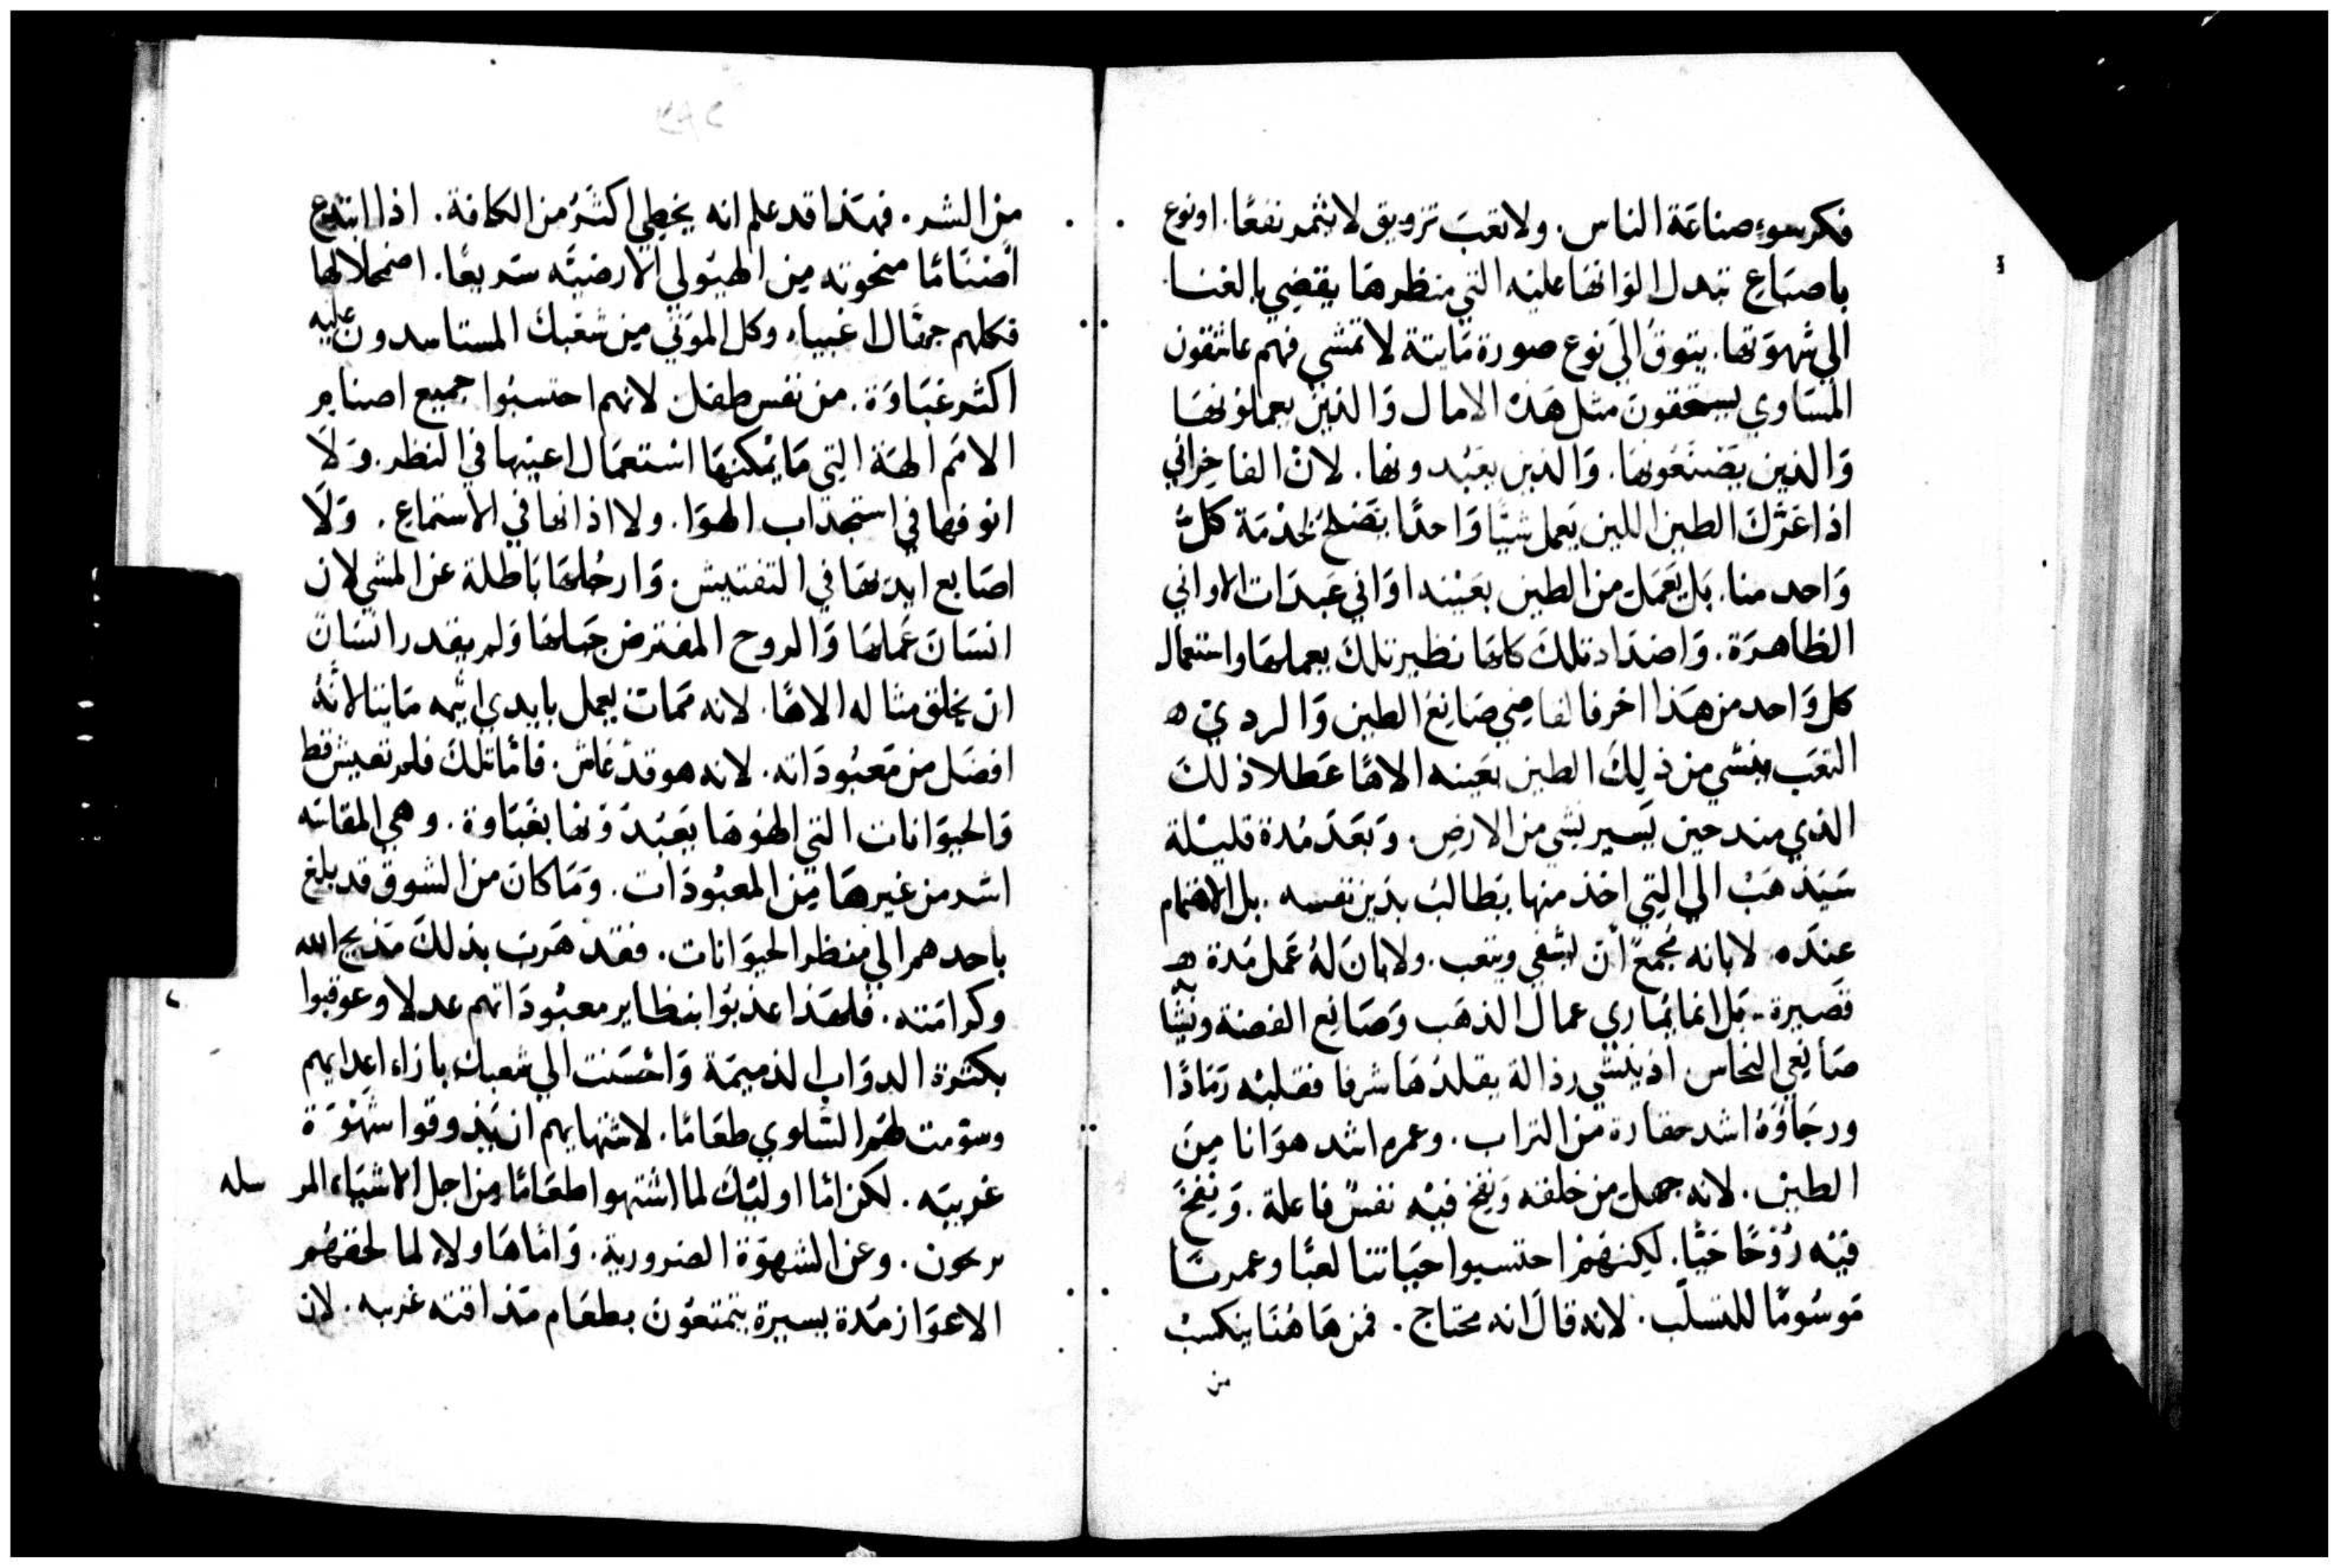 فكر سوء صناعَة الناس. ولا تعبَ تزويق لا يثمر نفعًا. او نوع
باصبَاغٍ تبدل الوانها عليْه التي منظرهَا يقضِي بالغنا
الي شهوَتها. يتوقُ الي نوع صورة مَايتة لا تمشي فهم عاشقون
المسَاوي يستحقون مثل هَذه الامال وَالذين يعملونهَا
وَالذين يَصْنعُونهَا. وَالذين يعبُدونها. لان الفاخراني
اذا عَرَّكَ الطين اللين يَعمل شيًا وَاحدًا يَصْلح لخدْمَة كلّ
وَاحد منا. بَل يَعْمَل من الطين بعَيْنه اوَاني عَبدَات الاواني
الظاهرَة. وَاضدَاد تلكَ كلهَا نظير تلكَ يعملهَا واستعمال
كل وَاحد من هَذا اخر فالقاضِي صَانعُ الطين وَالردي
التعَب ينشي من ذلِكَ الطين بعَينه الاهًا عَطلا ذلكَ
الذي منذ حين يَسير نشي من الارض. وَبَعدَ مُدة قليْلة
سَيَذهَبْ الي التي اخذ منها يُطالبُ بدَين نفسه. بل الاهتمام
عنده لا بانه مُجمعٌ أن يشقي ويتعب. ولا بان لهُ عَمل مُدة
قصَيرة. بَل انما يُمَاري عمال الذهَب وَصَانع الفضة ويشا
صَانعي النحاس. اذ ينشي رذالة يقلدهَا شرفا فقلبْه رَمَادًا
ورجَاؤهُ اشد حقارة من التراب. وعمره اشد هوَانا مِنَ
الطين. لانه جهل من خلقه وَنفخ فيْه نفسٌ فاعلة. وَنفخَ
فيْه رُوْحًا حَيًّا. لكِنهُمْ احتسبوا حَيَاتنا لعبًا وعمرنَا
مَوسُومًا للتسلّب. لانه قال انه محتاج. فمن هَاهُنَا ينكسبْ
من
مِن الشر. فهَذا قد علم انه يخطِي اكثرُ من الكافة. اذا ابتدع
اصْنَامًا منحوته مِن الهيُولي الارضيَّه سَريعًا. اضمحلالها
فكلهم جهَّال اغبياء. وكل الموَتي مِن شعْبكَ المستاسدون عليه
اكثر غبَاوَة. من نفس طفل لانهم احتسبُوا جميع اصنام
الامَم الهَة التي مَا يمْكنهَا اسْتعمَال اعينها في النظر. وَلَا
انوفها في استجذاب الهوَا. ولا اذانها في الاستماع. وَلَا
اصَابع ايدَيهَا في التفتيش. وَارجُلهَا بَاطلة عن المشي لان
انسَانَ عَملهَا وَالروح المفترض جَبلهَا وَلم يقدر انسَان
ان يخلق مثاله الاهًا. لانه مَمَات يعمل بايدي اثيمه مَايتا لانَّهُ
افضَل من مَعبُودَاته. لانه هو قدْ عَاش. فامَّا تلكَ فلم تعيش قط
وَالحيَوانات التي الهوهَا يَعبُدَونها بغبَاوة. وهي المقاتَه
اشد من غيرهَا مِن المعبُودَات. وَمَا كان من الشوق قد بلغ
باحدهم الي منظر الحيَوَانات. فقد هَربَ بذلكَ مَذيح الله
وكرامَته. فلهَذا عذبُوا بنظاير معبُودَاتهم عدلا وعوقبوا
بكثرة الدوَاب الذميمَة وَاحْسَنت الي شعبكَ بازاء اعدايهم
وسوّمت لهُم السَّلوي طعَامًا. لاشتهايهم ان يَذوقوا شَهْوَة
غريبَه. لكن امَّا اوليْكَ لما اشتهوا طعَامًا من اجل الاشيَاء المرسله
يرجون. وعن الشهوَة الضرورية. وَامَّا هَاولاء لما لحقهُم
الاعوَاز مُدة يسيرة يتمتعُون بطعَام مَذاقته غريبه. لان